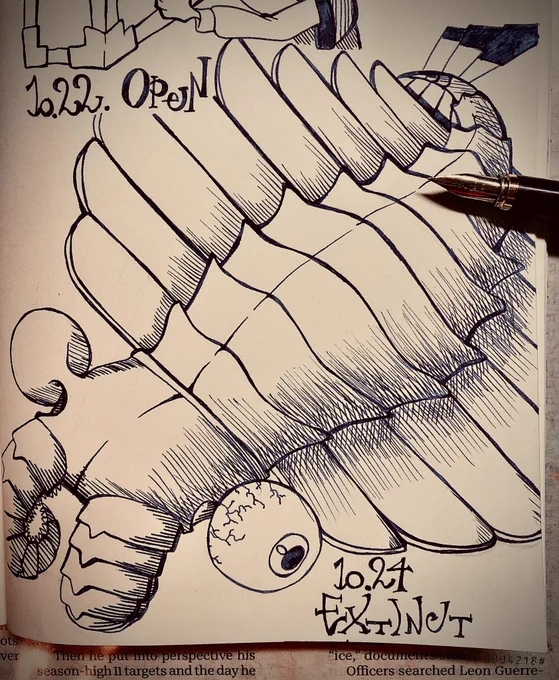 10.22. OPEN
10.24
EXTINCT
Then he put into perspective his
season-high 11 targets and the day he
"ice," documents
Officers searched Leon Guerre-